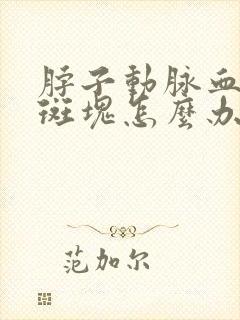 脖子動脈血
斑塊怎麼办
范加尔